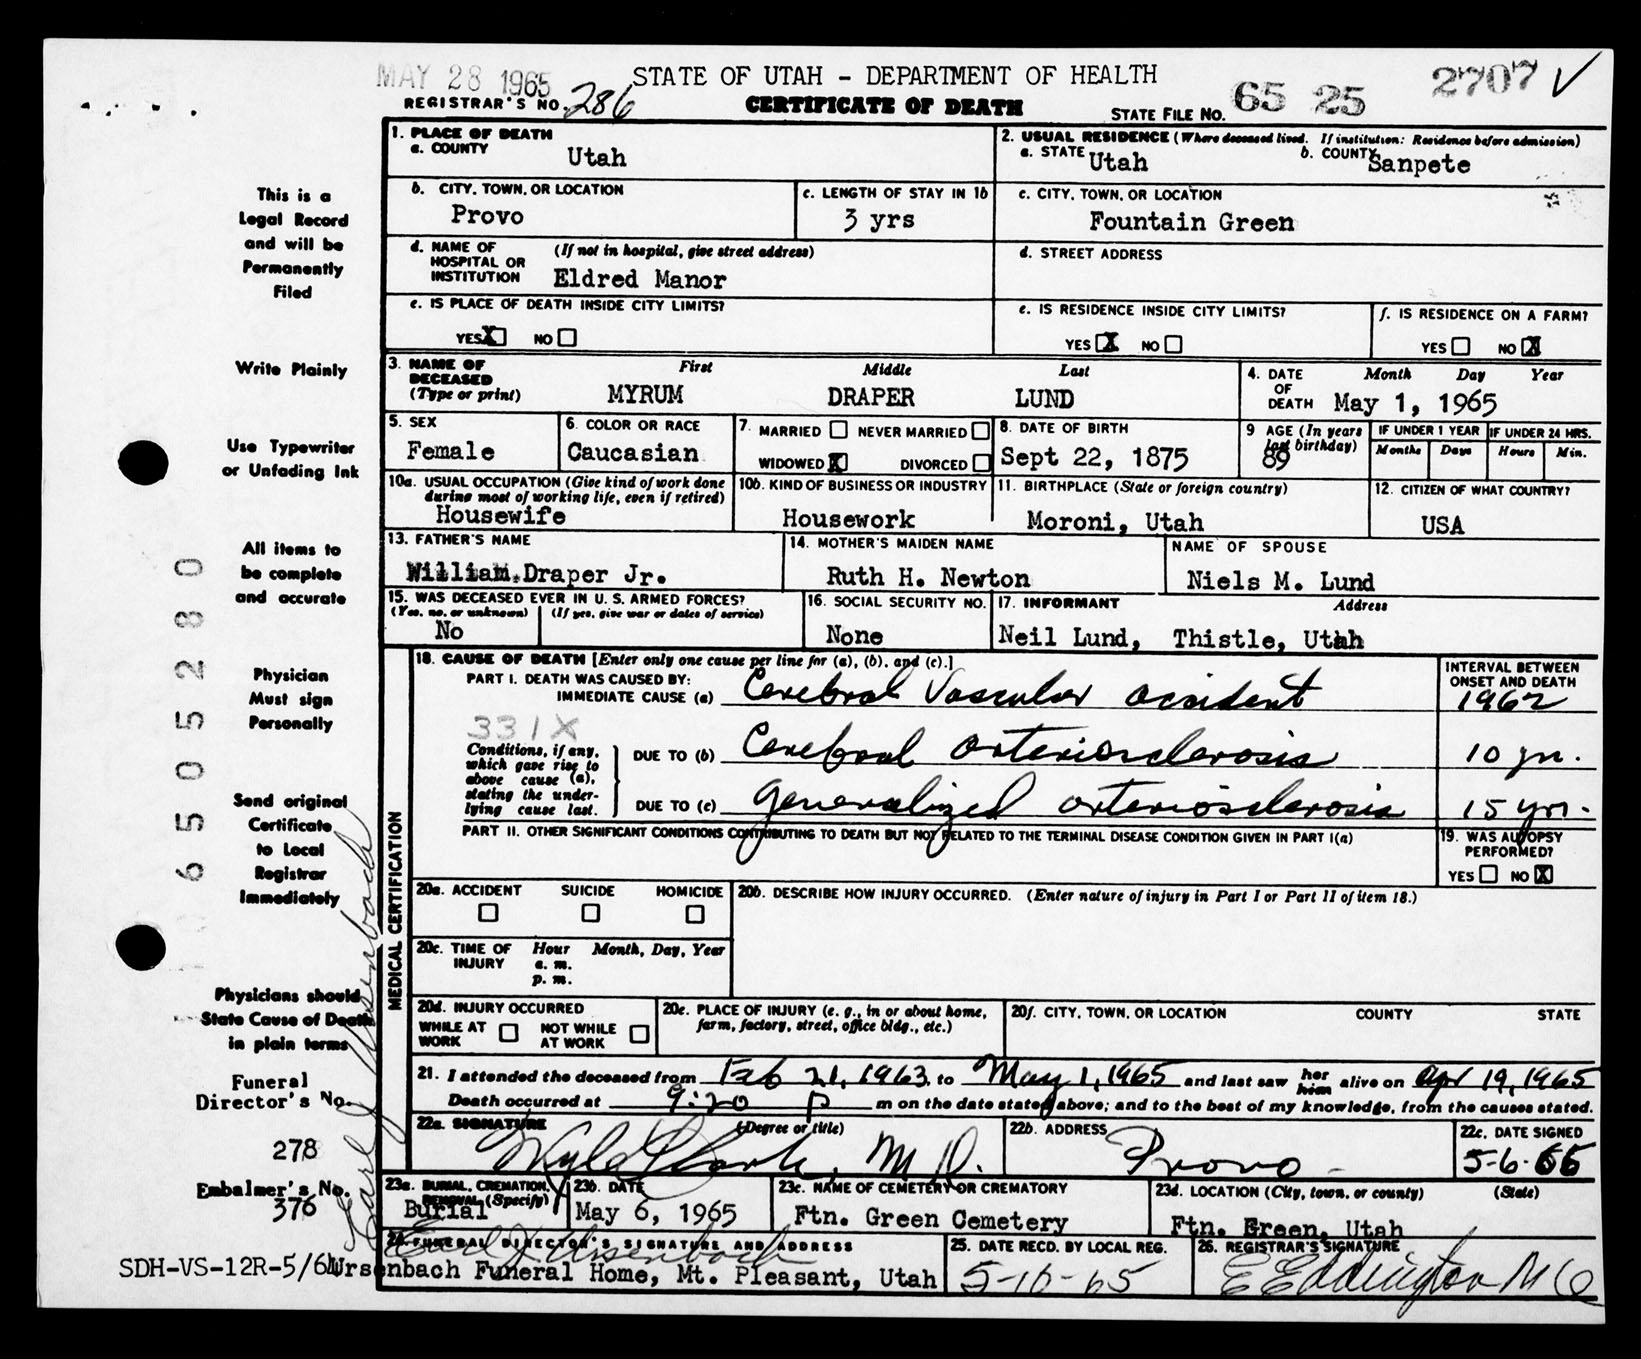 MAY 28 1965
STATE OF UTAH - DEPARTMENT OF HEALTH
REGISTRAR'S NO. 286
CERTIFICATE OF DEATH
STATE FILE NO. 65 25 2707 ✓
1. PLACE OF DEATH
a. COUNTY Utah
2. USUAL RESIDENCE (Where deceased lived. If institution: Residence before admission)
a. STATE Utah b. COUNTY Sanpete
b. CITY, TOWN, OR LOCATION
Provo
c. LENGTH OF STAY IN 1b
3 yrs
c. CITY, TOWN, OR LOCATION
Fountain Green
d. NAME OF HOSPITAL OR INSTITUTION (If not in hospital, give street address)
Eldred Manor
d. STREET ADDRESS
e. IS PLACE OF DEATH INSIDE CITY LIMITS?
YES X NO
e. IS RESIDENCE INSIDE CITY LIMITS?
YES X NO
f. IS RESIDENCE ON A FARM?
YES NO X
3. NAME OF DECEASED (Type or print)
First Middle Last
MYRUM DRAPER LUND
4. DATE OF DEATH Month Day Year
May 1, 1965
5. SEX
Female
6. COLOR OR RACE
Caucasian
7. MARRIED NEVER MARRIED
WIDOWED X DIVORCED
8. DATE OF BIRTH
Sept 22, 1875
9 AGE (In years last birthday)
89
IF UNDER 1 YEAR IF UNDER 24 HRS.
Months Days Hours Min.
10a. USUAL OCCUPATION (Give kind of work done during most of working life, even if retired)
Housewife
10b. KIND OF BUSINESS OR INDUSTRY
Housework
11. BIRTHPLACE (State or foreign country)
Moroni, Utah
12. CITIZEN OF WHAT COUNTRY?
USA
13. FATHER'S NAME
William Draper Jr.
14. MOTHER'S MAIDEN NAME
Ruth H. Newton
NAME OF SPOUSE
Niels M. Lund
15. WAS DECEASED EVER IN U.S. ARMED FORCES?
(Yes, no, or unknown) (If yes, give war or dates of service)
No
16. SOCIAL SECURITY NO.
None
17. INFORMANT Address
Neil Lund, Thistle, Utah
MEDICAL CERTIFICATION
18. CAUSE OF DEATH [Enter only one cause per line for (a), (b), and (c).]
INTERVAL BETWEEN ONSET AND DEATH
PART I. DEATH WAS CAUSED BY:
IMMEDIATE CAUSE (a) Cerebral Vascular accident 1962
331X
Conditions, if any, which gave rise to above cause (a), stating the underlying cause last.
DUE TO (b) Cerebral arteriosclerosis 10 yr.
DUE TO (c) generalized arteriosclerosis 15 yr.
PART II. OTHER SIGNIFICANT CONDITIONS CONTRIBUTING TO DEATH BUT NOT RELATED TO THE TERMINAL DISEASE CONDITION GIVEN IN PART I(a)
19. WAS AUTOPSY PERFORMED?
YES NO X
20a. ACCIDENT SUICIDE HOMICIDE
20b. DESCRIBE HOW INJURY OCCURRED. (Enter nature of injury in Part I or Part II of item 18.)
20c. TIME OF INJURY Hour Month, Day, Year
a. m.
p. m.
20d. INJURY OCCURRED
WHILE AT WORK NOT WHILE AT WORK
20e. PLACE OF INJURY (e. g., in or about home, farm, factory, street, office bldg., etc.)
20f. CITY, TOWN, OR LOCATION COUNTY STATE
21. I attended the deceased from Feb 21, 1963, to May 1, 1965 and last saw her him alive on Apr 19, 1965
Death occurred at 9:20 p m on the date stated above; and to the best of my knowledge, from the causes stated.
22a. SIGNATURE (Degree or title)
M D.
22b. ADDRESS
Provo
22c. DATE SIGNED
5-6-65
23a. BURIAL, CREMATION, REMOVAL (Specify)
Burial
23b. DATE
May 6, 1965
23c. NAME OF CEMETERY OR CREMATORY
Ftn. Green Cemetery
23d. LOCATION (City, town, or county) (State)
Ftn. Green, Utah
24. FUNERAL DIRECTOR'S SIGNATURE AND ADDRESS
Earl J. Ursenbach
Ursenbach Funeral Home, Mt. Pleasant, Utah
25. DATE RECD. BY LOCAL REG.
5-10-65
26. REGISTRAR'S SIGNATURE
E Eddington M D
This is a
Legal Record
and will be
Permanently
Filed
Write Plainly
Use Typewriter
or Unfading Ink
All items to
be complete
and accurate
Physician
Must sign
Personally
Send original
Certificate
to Local
Registrar
Immediately
Physicians should
State Cause of Death
in plain terms
Funeral
Director's No.
278
Embalmer's No.
376
SDH-VS-12R-5/64
6505280
Earl J Ursenbach